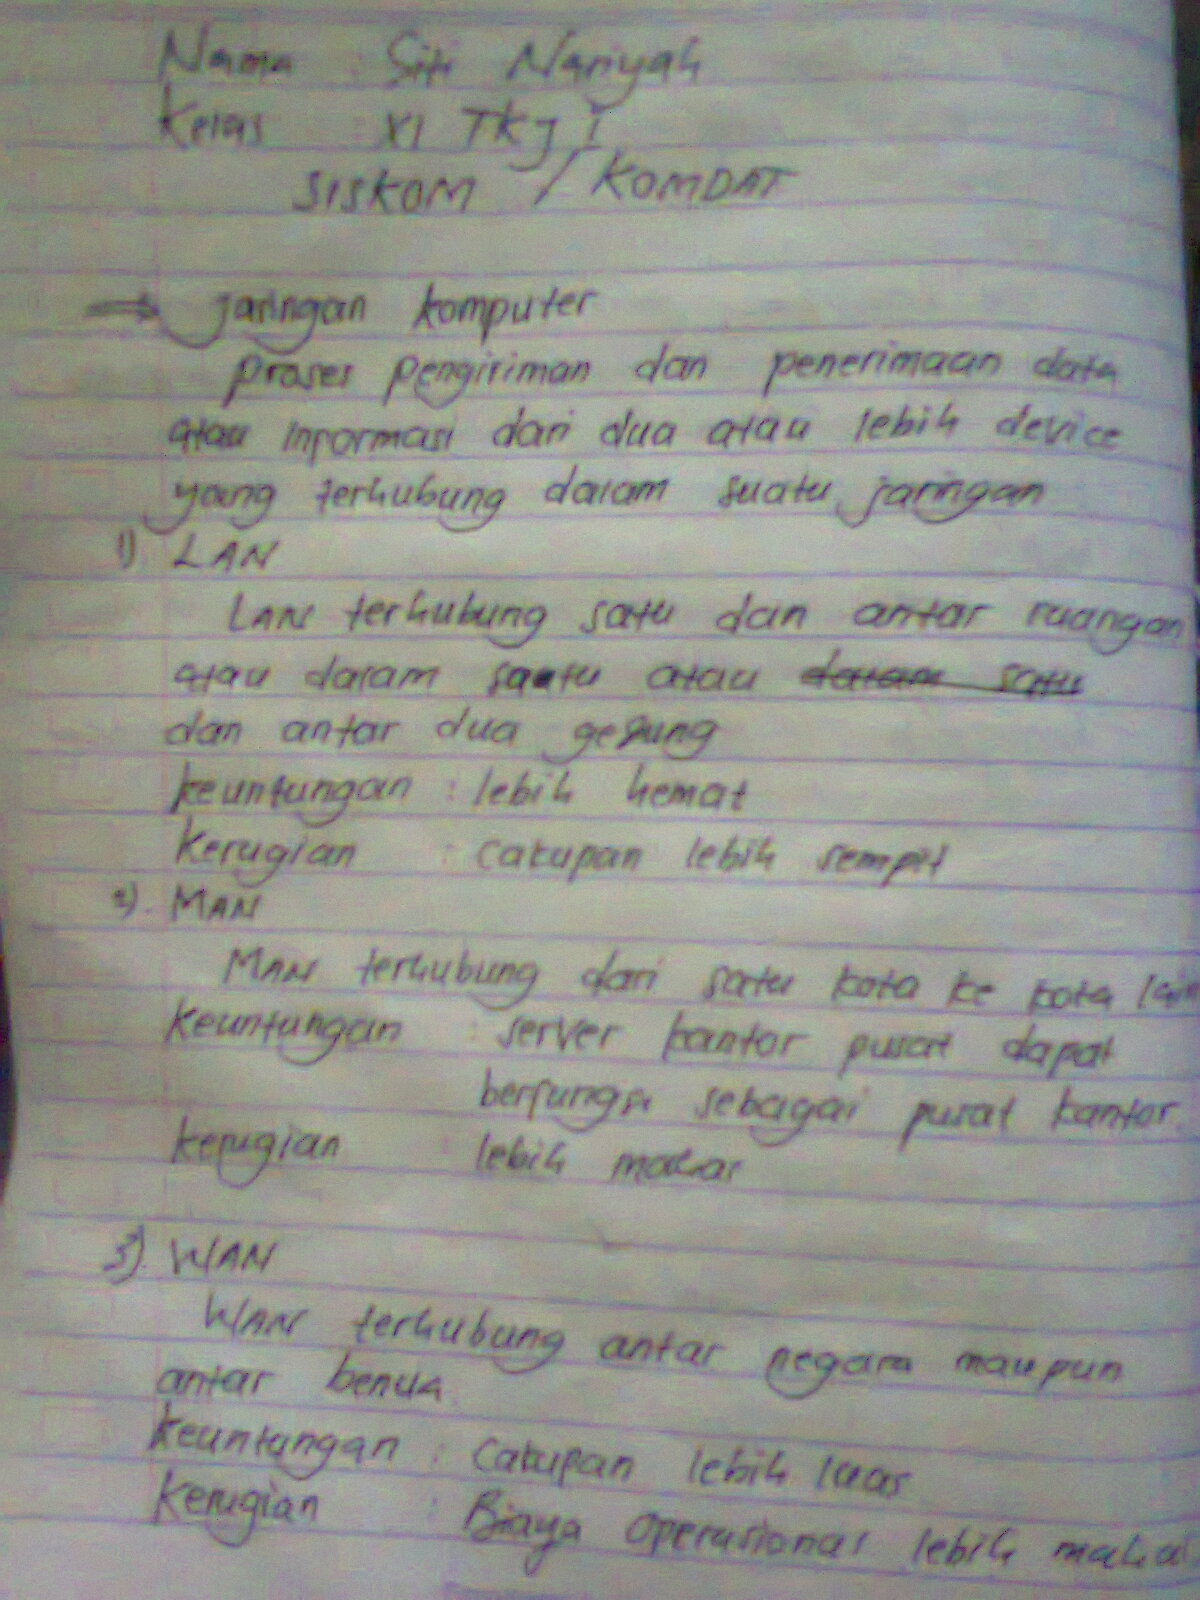 Nama : Siti Nariyah
Kelas : XI TKJ I
SISKOM / KOMDAT
⇒ jaringan komputer
proses pengiriman dan penerimaan data
atau informasi dari dua atau lebih device
yang terhubung dalam suatu jaringan
1) LAN
LAN terhubung satu dan antar ruangan
atau dalam suatu atau dalam satu
dan antar dua gedung
keuntungan : lebih hemat
Kerugian : Cakupan lebih sempit
2) MAN
MAN terhubung dari satu kota ke kota lain
Keuntungan : server kantor pusat dapat
berfungsi sebagai pusat kantor
kerugian lebih mahal
3) WAN
WAN terhubung antar negara maupun
antar benua
Keuntungan : Cakupan lebih luas
Kerugian : Biaya operasional lebih mahal